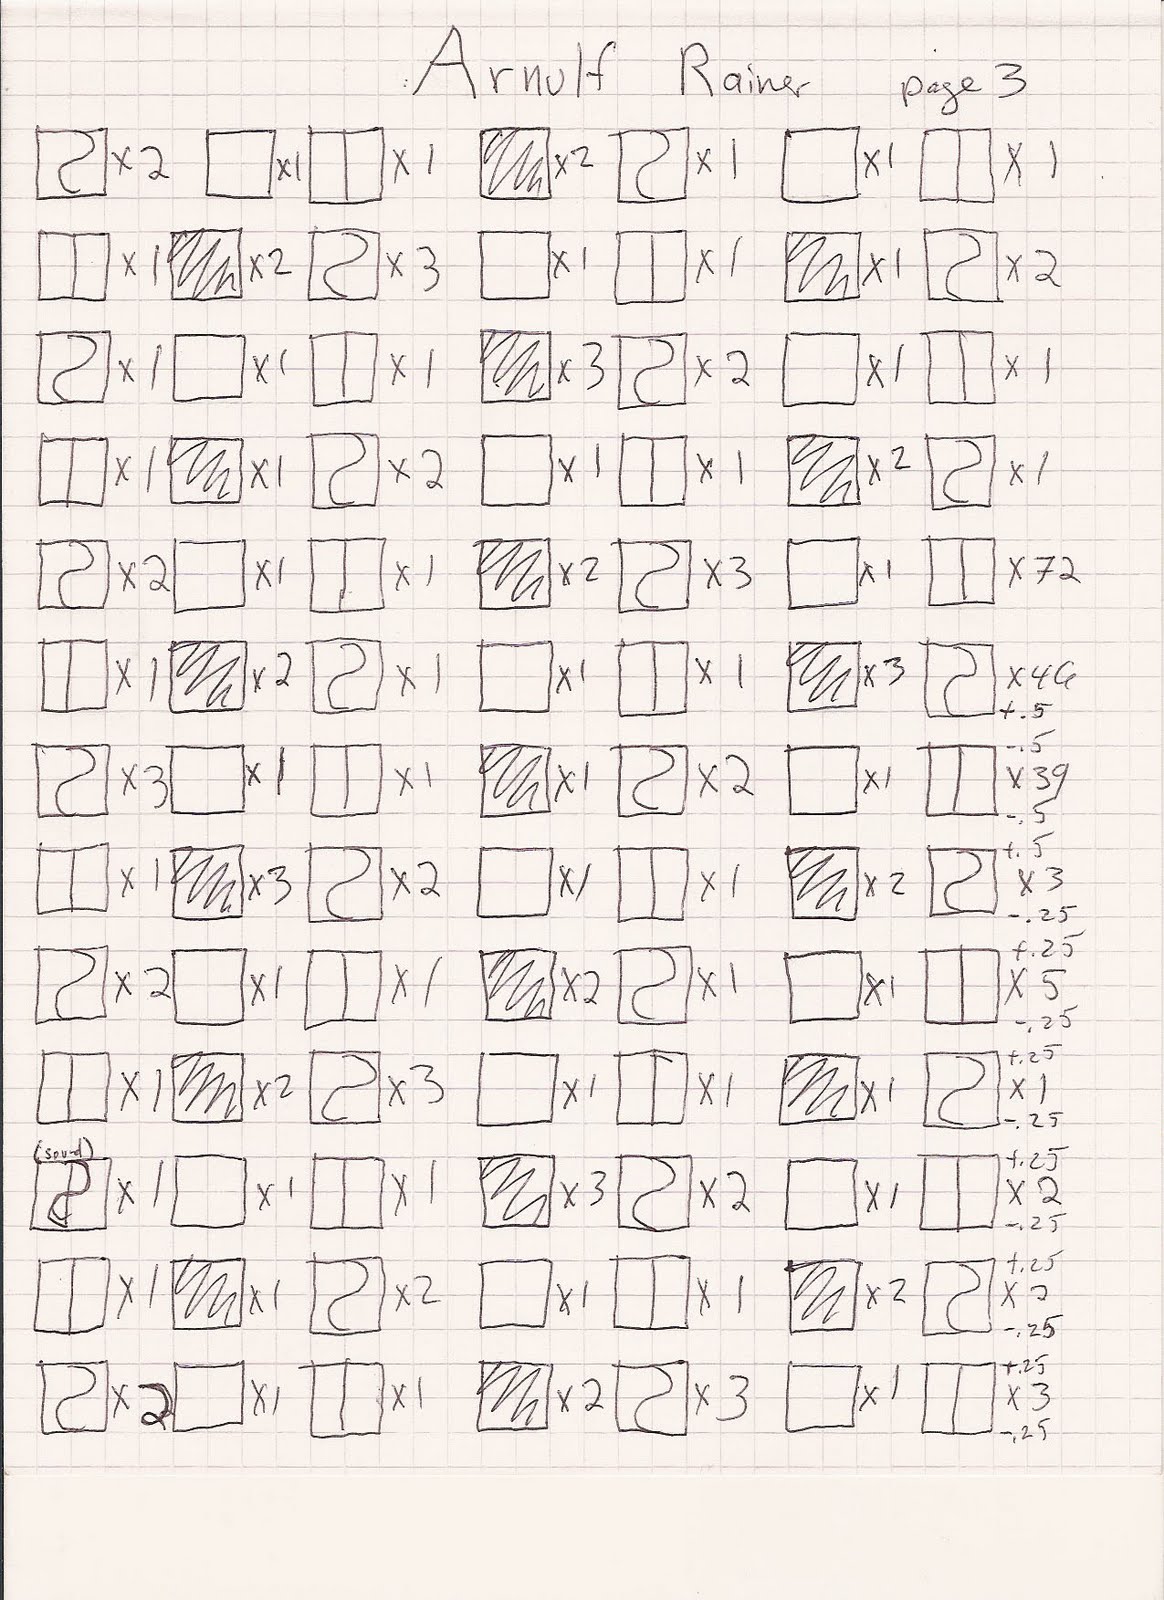 Arnulf Rainer page 3
x2 x1 x1 x2 x1 x1 x1
x1 x2 x3 x1 x1 x1 x2
x1 x1 x1 x3 x2 x1 x1
x1 x1 x2 x1 x1 x2 x1
x2 x1 x1 x2 x3 x1 x72
x1 x2 x1 x1 x1 x3 x46
+.5
-.5
x3 x1 x1 x1 x2 x1 x39
-.5
+.5
x1 x3 x2 x1 x1 x2 x3
-.25
+.25
x2 x1 x1 x2 x1 x1 x5
-.25
+.25
x1 x2 x3 x1 x1 x1 x1
-.25
(sound)
+.25
x1 x1 x1 x3 x2 x1 x2
-.25
+.25
x1 x1 x2 x1 x1 x2 x
-.25
+.25
x2 x1 x1 x2 x3 x1 x3
-.25